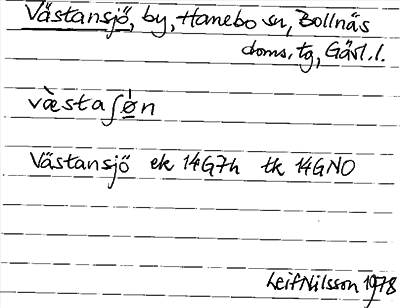 Västansjö, by, Hanebo sn, Bollnäs
doms. tg, Gävl. l.
væ̀staʃǿ̲n
Västansjö ek 14G7h tk 14GNO
Leif Nilsson 1978